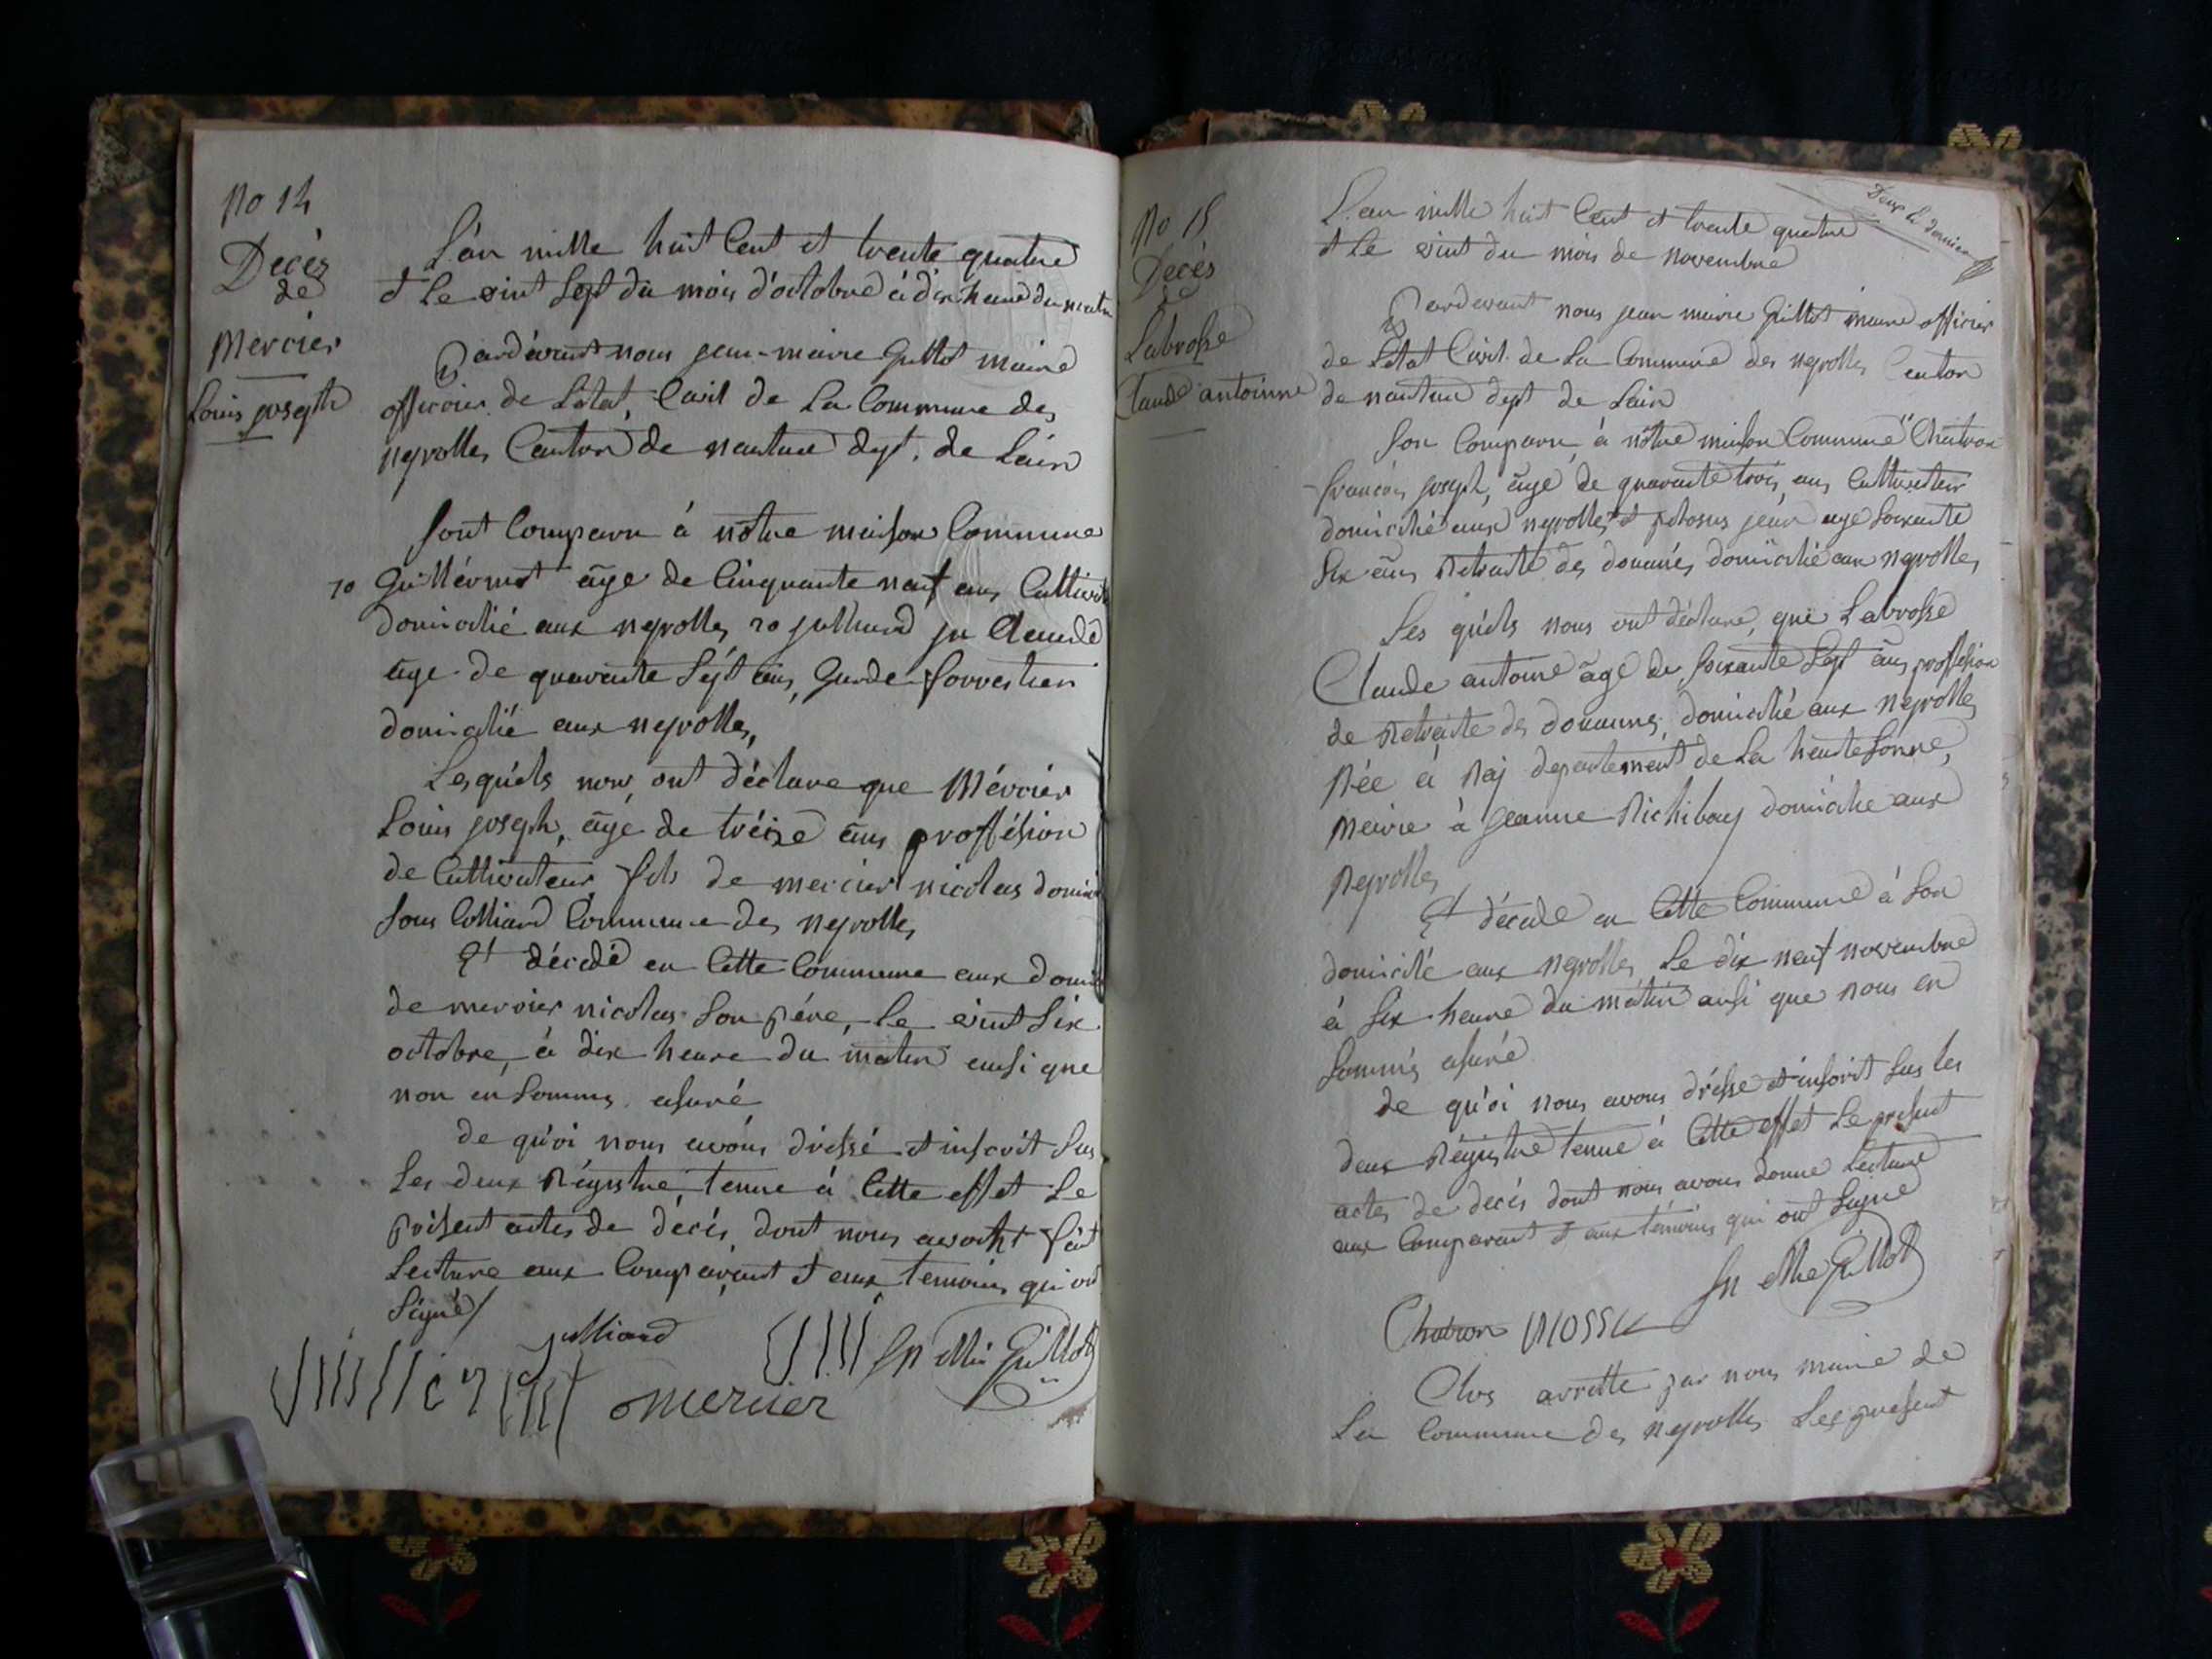 No 14
Décès
de
Mercier
Louis joseph
L'an mille huit Cent et trente quatre
et Le vint Sept du mois d'octobre à dix heure du matin
Pardevant nous jean-marie Guillot maire
officier de Létat, Civil de La Commune des
neyrolles Canton de nantua dept. de Lain
sont Comparu à nôtre maison Commune
10 Guillermet âge de Cinquante neuf ans Cultiv
domicilié aux neyrolles 20 julliard Claude
âge de quarante Sept ans, Garde forrestier
domicilié aux neyrolles,
Lesquels nous ont déclare que Mércier
Louis joseph, âge de tréize ans proffésion
de Cultivateur fils de mercier nicolas domici
sous Colliard Commune des neyrolles
Et décédé en Cette Commune aux domi
de mercier nicolas son pére, Le vint Six
octobre, à dix heure du matin ausi que
nou en sommes asuré
de qu'oi nous avons dréssé et inscrit Sus
Les deux Régistre, tenue à Cette effet Le
présent actes de décés, dont nous avons fait
Lecture aux Comparant et aux temoins qui ont
Signé/
julliard
Guillermet mercier Jn Mie Guillot
Deux & dernier
No 15
Decès
de
Labrosse
Claude antoinne
L'an mille huit Cent et trente quatre
et Le vint du mois de novembre
Pardevant nous jean marie Guillot maire officier
de Létat Civil de La Commune des neyrolles Canton
de nantua dept de Lain
Son Comparu à nôtre maison Commune Chatron
françois joseph, âge de quarante trois ans Cultivateur
domicilié aux neyrolles et jean age soixante
Six ans Retraité des douanés domicilié aux neyrolles
Les quéls nous ont déclare, que Labrosse
Claude antoine âgé de soixante Sept ans proffesion
de Retraite des douannes domicilié aux neyrolles
Née à Raj departement de La haute sonne,
Marie à jeanne Richibouj domicilie aux
Neyrolles
Et décéde en Cette Commune à Son
domicilé aux neyrolles Le dix neuf novembre
à Six heure du matin ausi que nous en
sommés asuré
de qu'oi nous avons dréssé et inscrit Sus les
deux Régistre tenue à Cette effet Le présent
actes de decés dont nous avons donne Lecture
aux Comparant & aux témoins qui ont Signe
Jn Mie Guillot
Chatron MOSSU
Clos arrette par nous maire de
La Commune des neyrolles Les present